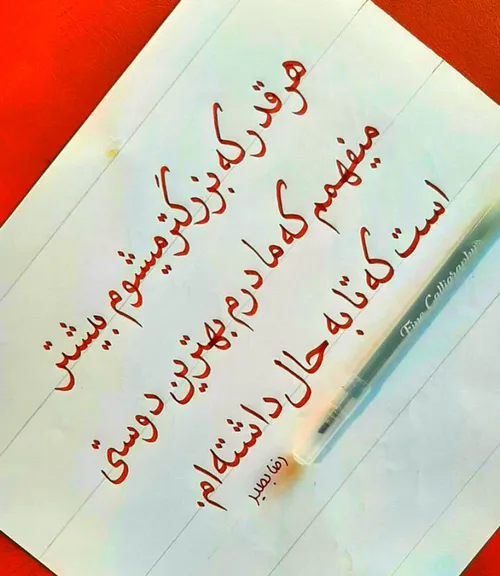 هر قدر که بزرگتر میشوم بیشتر
میفهمم که مادرم بهترین دوستی
است که تا به حال داشته‌ام.
رضا بصیر
Fine Calligraphy